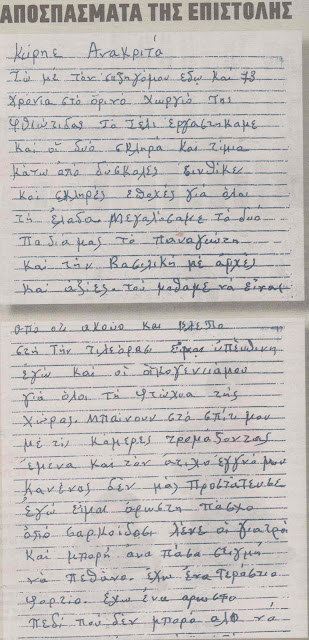 ΑΠΟΣΠΑΣΜΑΤΑ ΤΗΣ ΕΠΙΣΤΟΛΗΣ
Κύριε Ανακριτά
Ζώ μέ τόν συζηγόμου εδω και 73
χρονια στό όρινό χωργιό της
Φθιώτιδας Τό Τέλι εργαστηκαμε
και οι δυό σκληρά και τίμια
κάτω από δυσκολες συνθίκες
και σκληρές εποχές γιά όλοι
τή έλαδα. Μεγαλόσαμε τό δυό
παδιαμας τό παναγιώτη
και τήν Βασιλική μέ αρχές
και αξίες. τού μαθαμε νά είναι
από οτι ακούο και βλεπο
στή Τήν τιλεόρασι είμαι υπευθινη
εγώ και οι οικογενιάμου
γιά όλοι τή φτώχυα τής
χώρας. Μπαίνουν στό σπίτι μου
μέ τις κάμερες τρομάζοντας
έμενα και τόν ανιλο εγγνό μου
Κανένας δέν μας προστατευσε
έγώ είμαι άρωστη πάσχο
από σαρκοίδοσι λένε οι γιατροί
και μπορή άνα πάσα στιγμή
νά πεθάνο. έχω ένα Τεράστιο
φορτίο. έχω ένα αρωστο
πεδί πού δέν μπορο αλο νά